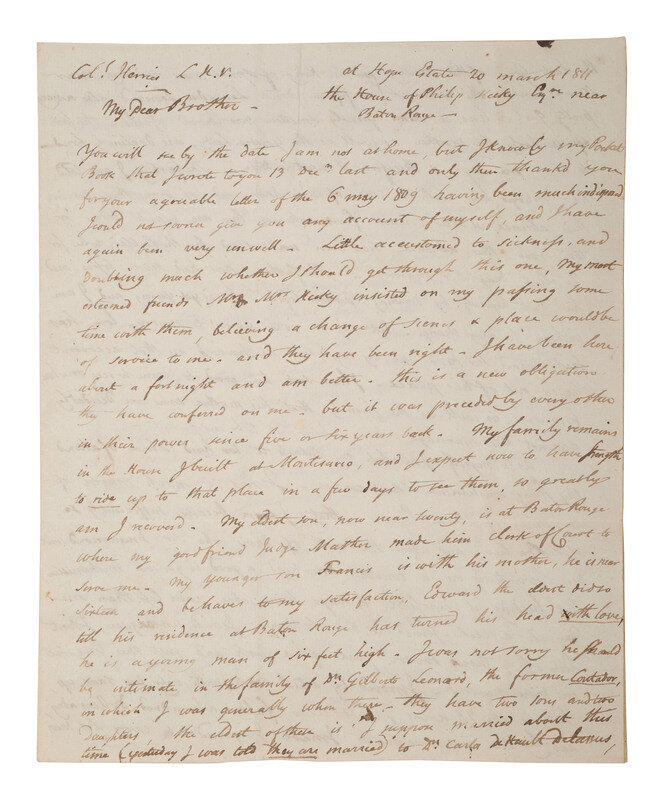 Col.l Herries L H V.
at Hope Estate 20 march 1811
the House of Philip Hicky Esqre near
Baton Rouge —
My Dear Brother —
You will see by the date I am not at home, but I know by my Pocket
Book that I wrote to you 13 Decr last and only then thankd you
for your agreeable letter of the 6 may 1809 having been much indisposed
I could not sooner give you any account of myself, and I have
again been very unwell - Little accustomed to sickness, and
Doubting much whether I should get through this one, My most
esteemed friends Mr & Mrs Hicky insisted on my passing some
time with them, believing a change of scenes & place would be
of service to me - and they have been right - I have been here
about a fortnight and am better - this is a new obligation
they have conferred on me - but it was preceded by every other
in their power since five or six years back - My family remains
in the House I built at Montesano, and I expect now to have strength
to ride up to that place in a few days to see them, so greatly
am I recoverd - My eldest son, now near twenty, is at Baton Rouge
where my good friend Judge Mather made him clerk of Court to
serve me - My younger son Francis is with his mother, he is near
sixteen and behaves to my satisfaction, Edward the eldest did so
till his residence at Baton Rouge has turned his head with love,
he is a young man of six feet high - I was not sorry he should
be intimate in the family of Dn Gilberto Leonard, the former Contador,
in which I was generally when there - they have two sons and two
daughters, the eldest of these is I suppose married about this
time (yesterday I was told they are married to Dn Carlos deHault Delassus,